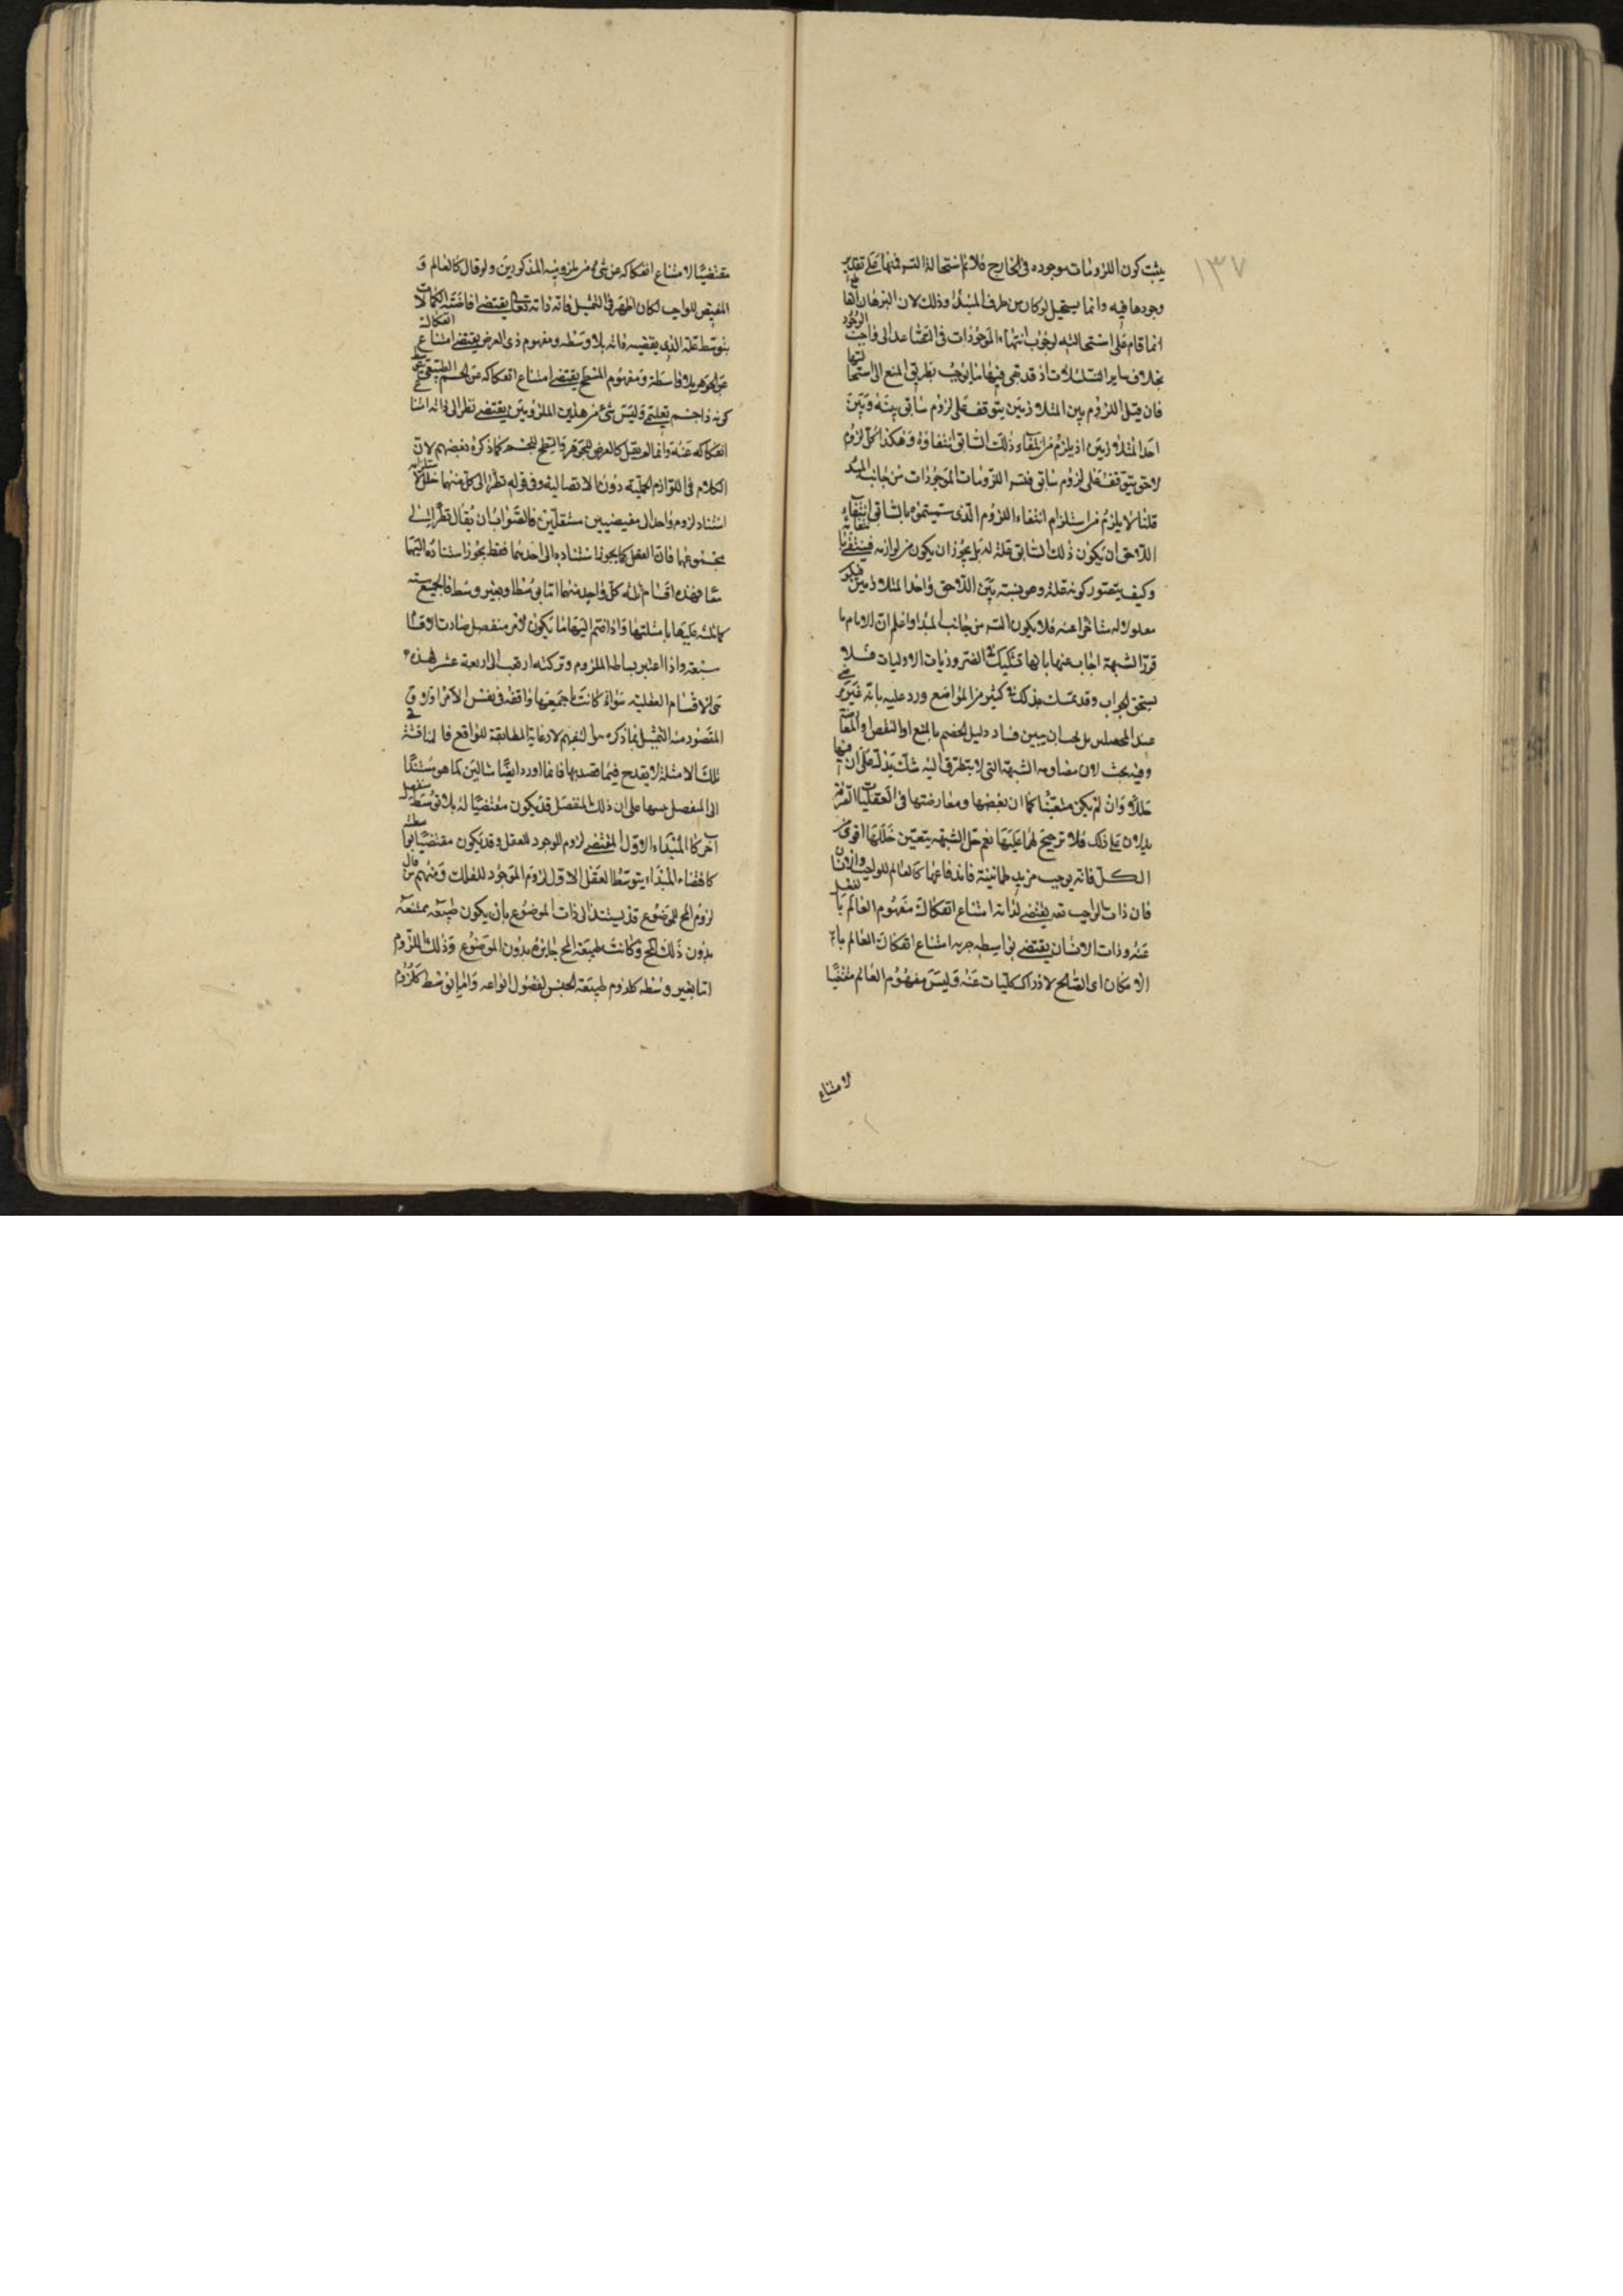 ١٣٧
يثبت كون اللزومات موجوده فى الخارج فلا نم استحالة التسـ فيها على تقدير
وجودها فيه وانما يستحيل لو كان من طرف المبدأ وذلك لان البرهان
انما قام على استحالته لوجوب انتهاء الموجودات فى التصاعد الى واجب الوجود
بخلاف ساير التسلسلات اذ قد بقى فيها ما يوجب تطريق المنع الى استحالتها
فان قيل اللزوم بين المتلازمين يتوقف على لزوم سابق بينه وبين
احد المتلازمين اذ يلزم من انتفاء ذلك السابق انتفاؤه وهكذا كل لزوم
لاحق يتوقف على لزوم سابق فتسـ اللزومات الموجودات من جانب المبدأ
قلنا لا يلزم من استلزام انتفاء اللزوم الذى سميتموه بالسابق انتفاء
اللاحق ان يكون ذلك السابق علة له بل يجوز ان يكون من لوازمه فينتفى بانتفائه
وكيف يتصور كونه علة وهو نسبة بين اللاحق واحد المتلازمين فيكون
معلولا له متأخرا عنه فلا يكون التسـ من جانب المبدا واعلم ان الامام لما
قرر الشبهة اجاب عنها بانها تشكيك فى الضروريات الاوليات فلا
يستحق الجواب وقد تمسك بذلك فى كثير من المواضع ورد عليه بانه غير مرضى
عند المحصلين بل يجب ان يبين فساد دليل الخصم بالمنع او النقض او المعارضة
وفيه بحث لان مصادمة الشبهة التى لا يتطرق اليه شك يدل على ان فيها
خللا وان لم يكن متعينا كما ان نقضها ومعارضتها فى العقليات الصرفة
يدلان على ذلك فلا ترجيح لهما عليها نعم حل الشبهة بتعيين خللها اقوى من
الكل فانه يوجب مزيد طمانينة فاندفاعها كالعالم للواجب والانسان
فان ذات الواجب تعه يقتضى لذاته امتناع انفكاك مفهوم العالم بالفعل
عنه وذات الانسان يقتضى بواسطة جزءه امتناع انفكاك العالم با
الامكان اى الصالح لادراك كليات عنه وليس مفهوم العالم مقتضيا
لامتناع
مقتضيا لامتناع انفكاكه عن شىء من ملزوميه المذكورين ولو قال كالعالم و
المفيض للواجب لكان اظهر فى التمثيل فانه ذاته تعالى يقتضى افاضة الكمالات
بتوسط علمه الذى يقتضيه ذاته بلا وسطه ومفهوم ذى العرض يقتضى امتناع انفكاكه
عن الجوهر بلا واسطة ومفهوم المسطح يقتضى امتناع انفكاكه عن الجسم الطبيعى
كونه ذا جسم تعليمى وليس شىء من هذين الملزومين يقتضى نظرا الى ذاته امتناع
انفكاكه عنه وانما لم يقل كالعرض للجوهر والسطح للجسم كما ذكره بعضهم لان
الكلام فى اللوازم الحملية دون الاتصالية وفى قوله نظرا الى كل منهما خلل لاستلزامه
استناد لزوم واحد الى مقتضيين مستقلين فالصواب ان يقال نظرا الى
مجموعهما فان العقل كما يجوز استناده الى احدهما فقط يجوز استناده اليهما
معا فهذه اقسام ثلثه كل واحد منهما اما بوسط او بغير وسط فالجميع سته
كما نبه عليها بامثلتها واذا انضم اليها ما يكون لامر منفصل صارت الاقسام
سبعة واذا اعتبر بساطة الملزوم وتركبه ارتقت الى اربعة عشر فهذه
هى الاقسام العقلية سواء كانت جميعها واقعة فى نفس الامر او لا و
المقصود من التمثيل بما ذكره هو التفهيم لا رعاية المطابقة للواقع فالمناقشة فى
تلك الامثلة لا يقدح فيما قصد بها فانما اورد ايضا مثالين لما هو مستند
الى المنفصل تنبيها على ان ذلك المنفصل قد يكون مقتضيا له بلا توسط منفصل
آخر كالمبداء الاول المقتضى لزوم الوجود للعقل وقد يكون مقتضيا بواسطته
كاقتضاء المبداء بتوسط العقل الاول لزوم الوجود للفلك ومنهم من قال
لزوم المح للموضوع قد يستند الى ذات الموضوع بان يكون طبيعته ممتنعة
بدون ذلك المح وكانت طبيعة المح جايزة بدون الموضوع وذلك اللزوم
اما بغير وسطه كلزوم طبيعة الجنس لفصول انواعه واما بتوسط كلزوم